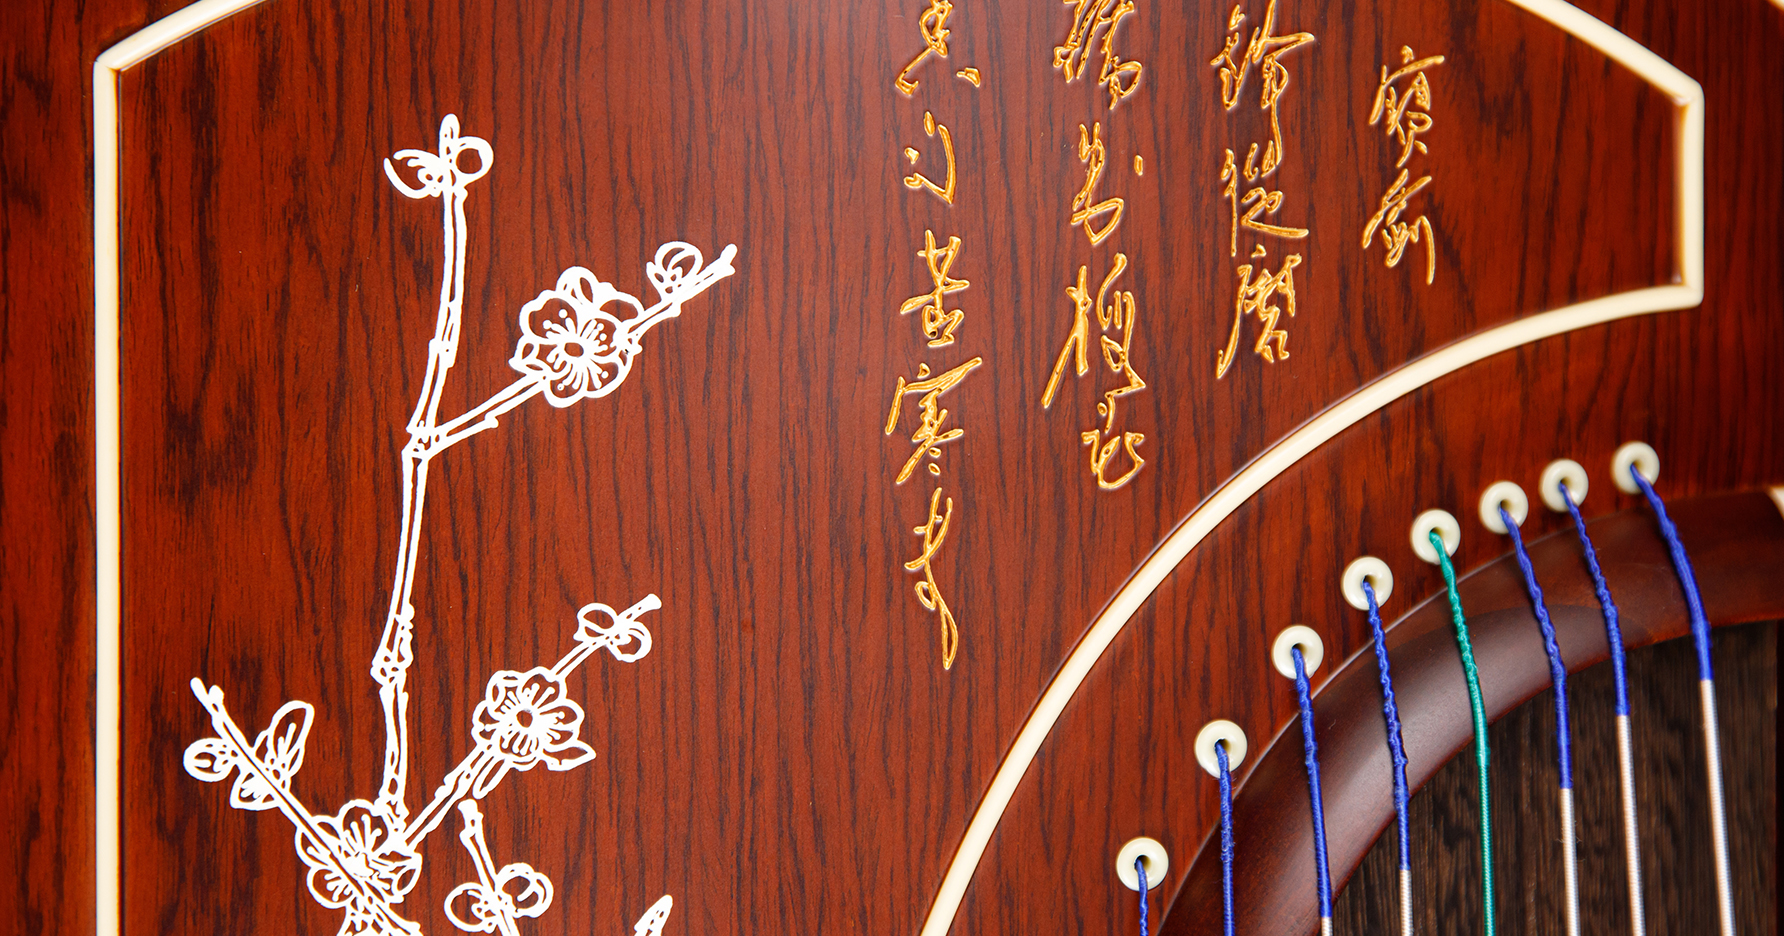 寶劍
鋒從磨
礪出梅花
香自苦寒來